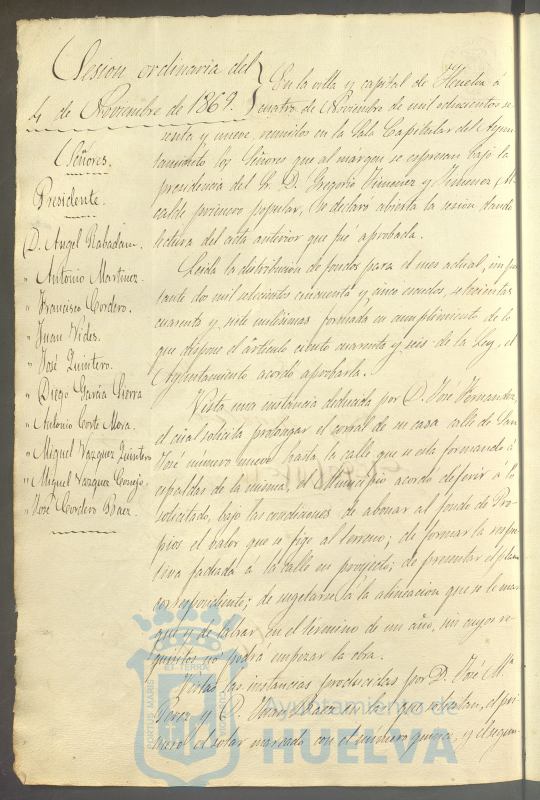 Sesion ordinaria del
4 de Noviembre de 1869.
Señores.
Presidente.
D. Angel Rabadan.
" Antonio Martinez.
" Francisco Cordero.
" Juan Vides.
" José Quintero.
" Diego Garcia Sierra
" Antonio Corte Mora.
" Miguel Vazquez Quintero
" Miguel Vazquez Conejo.
" José Cordero Baez.
En la villa y capital de Huelva á
cuatro de Noviembre de mil ochocientos se
senta y nueve, reunidos en la Sala Capitular del Ayun
tamiento los Señores que al márgen se espresan bajo la
presidencia del Sr. D. Gregorio Jimenez y Jimenez, Al
calde primero popular, se declaró abierta la sesion dando
lectura del acta anterior que fué aprobada.
Leida la distribucion de fondos para el mes actual, impor
tante dos mil setecientos cincuenta y cinco escudos, setecientas
cuarenta y siete milésimas formada en cumplimiento de lo
que dispone el artículo ciento cuarenta y seis de la Ley, el
Ayuntamiento acordó aprobarla.
Vista una instancia deducida por D. José Hernandez,
el cual solicita prolongar el corral de su casa calle de San
José número nueve hasta la calle que se está formando á
espaldas de la misma, el Municipio acordó deferir á lo
solicitado, bajo las condiciones de abonar al fondo de Pro
pios el valor que se fije al terreno; de formar la respec
tiva fachada á la calle en proyecto; de presentar el plano
correspondiente; de sugetarse á la alineacion que se le mar
que y de labrar en el término de un año, sin cuyos re
quisitos no podrá empezar la obra.
Vistas las instancias producidas por D. José Mª
Perez y D. Juan Baez en las que solicitan, el pri
mero el solar marcado con el número quince, y el segun
PORTUS MARIS
ET TERRÆ
Ayuntamiento de
HUELVA